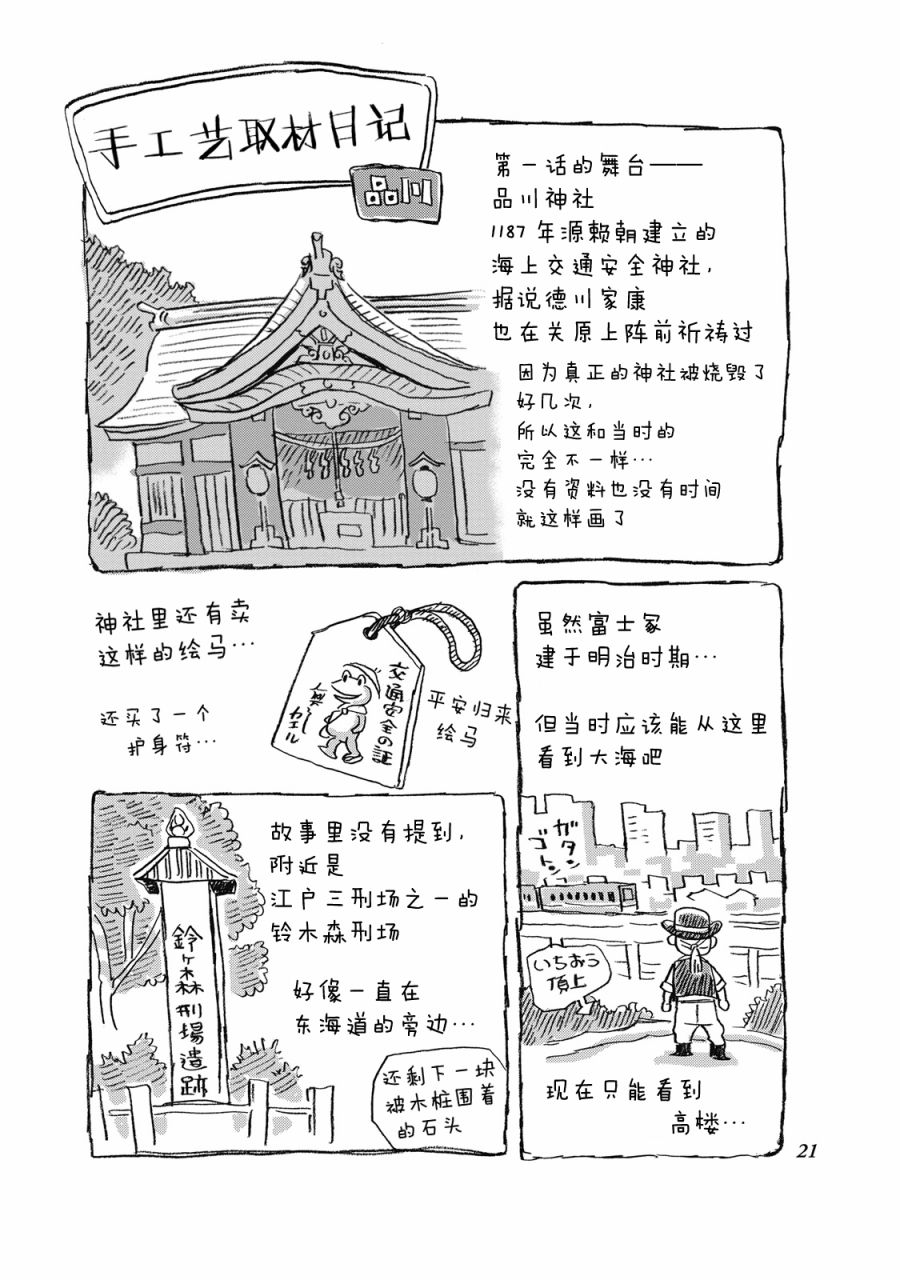 手工艺取材日记
品川
第一话的舞台——
品川神社
1187年源赖朝建立的
海上交通安全神社，
据说德川家康
也在关原上阵前祈祷过
因为真正的神社被烧毁了
好几次，
所以这和当时的
完全不一样…
没有资料也没有时间
就这样画了
神社里还有卖
这样的绘马…
还买了一个
护身符…
交通安全の証
カエール
平安归来
绘马
虽然富士冢
建于明治时期…
但当时应该能从这里
看到大海吧
ガタン
ゴトン
いちおう
頂上
现在只能看到
高楼…
故事里没有提到，
附近是
江户三刑场之一的
铃木森刑场
好像一直在
东海道的旁边…
鈴ヶ森刑場遺跡
还剩下一块
被木桩围着
的石头
21